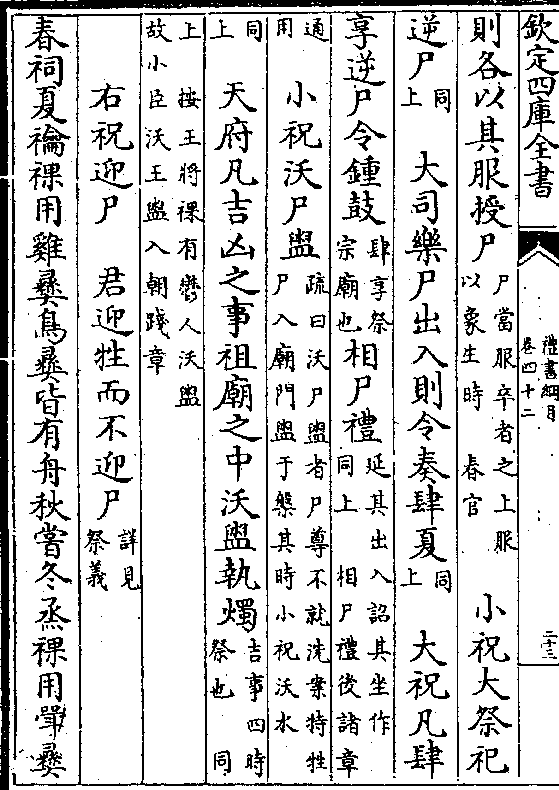 欽定四庫全書
禮書綱目
卷四十二
二十三
則各以其服授尸尸當服卒者之上服以象生時 春官 小祝大祭祀
逆尸同上 大司樂尸出入則令奏肆夏同上 大祝凡肆
享逆尸令鍾鼓肆享祭宗廟也相尸禮延其出入詔其坐作同上 相尸禮後諸章
通用 小祝沃尸盥疏曰沃尸盥者尸尊不就洗案特牲尸入廟門盥于槃其時小祝沃水
同上 天府凡吉凶之事祖廟之中沃盥執燭吉事四時祭也 同
上 按王將祼有鬱人沃盥故小臣沃王盥入朝踐章
右祝迎尸 君迎牲而不迎尸詳見祭義
春祠夏禴祼用雞彝鳥彝皆有舟秋嘗冬烝祼用斝彝